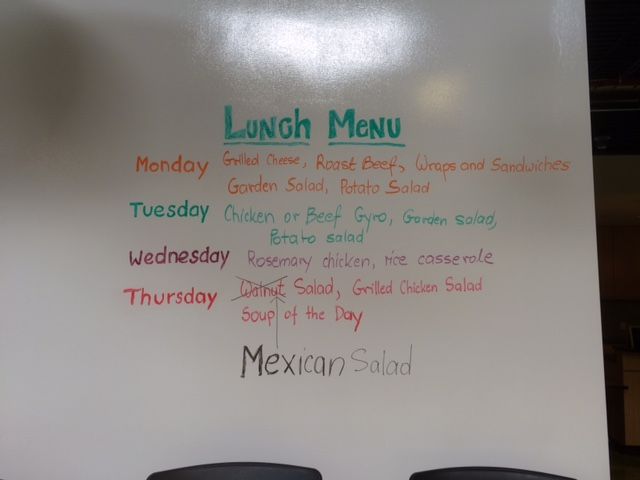 Lunch Menu
Monday Grilled Cheese, Roast Beef, Wraps and Sandwiches
Garden Salad, Potato Salad
Tuesday Chicken or Beef Gyro, Garden salad,
Potato salad
Wednesday Rosemary chicken, rice casserole
Thursday Walnut Salad, Grilled Chicken Salad
Soup of the Day
Mexican Salad